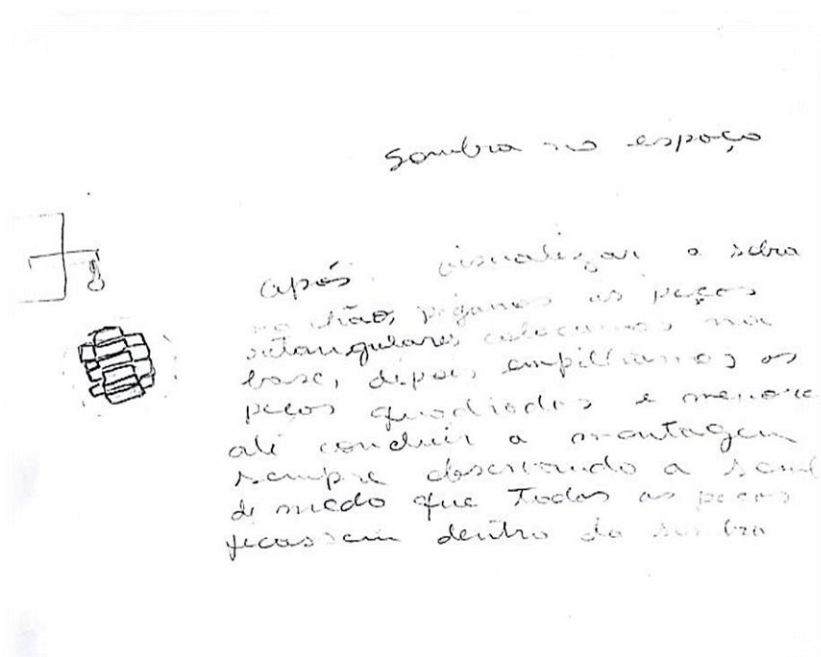 Sombra no espaço
Após visualizar a sobra
no chão, pegamos as peças
retangulares colocamos na
base, depois empilhamos as
peças quadradas e menore
até concluir a montagem
sempre observando a somb
de modo que todas as peças
ficassem dentro da sombra